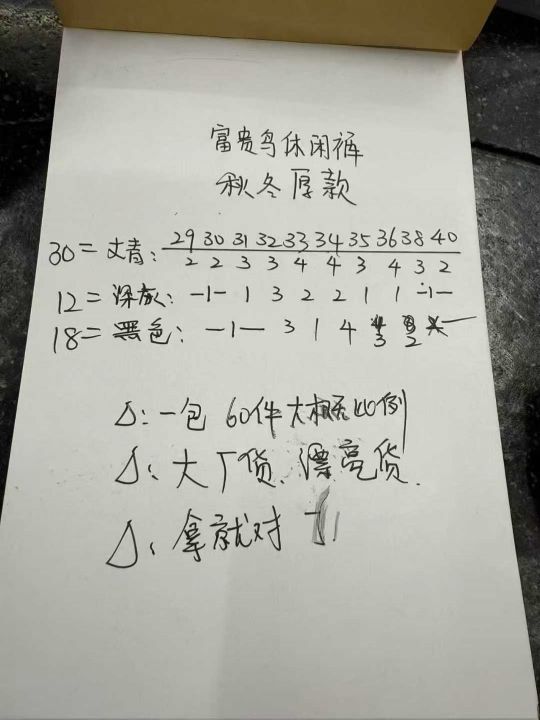 富贵鸟休闲裤
秋冬厚款
29 30 31 32 33 34 35 36 38 40
30= 丈青: 2 2 3 3 4 4 3 4 3 2
12= 深灰: —1— 1 3 2 2 1 1 —1—
18= 黑色: —1— 3 1 4 3 2 —
△: 一包 60件大概比例
△: 大厂货、漂亮货.
△: 拿就对了